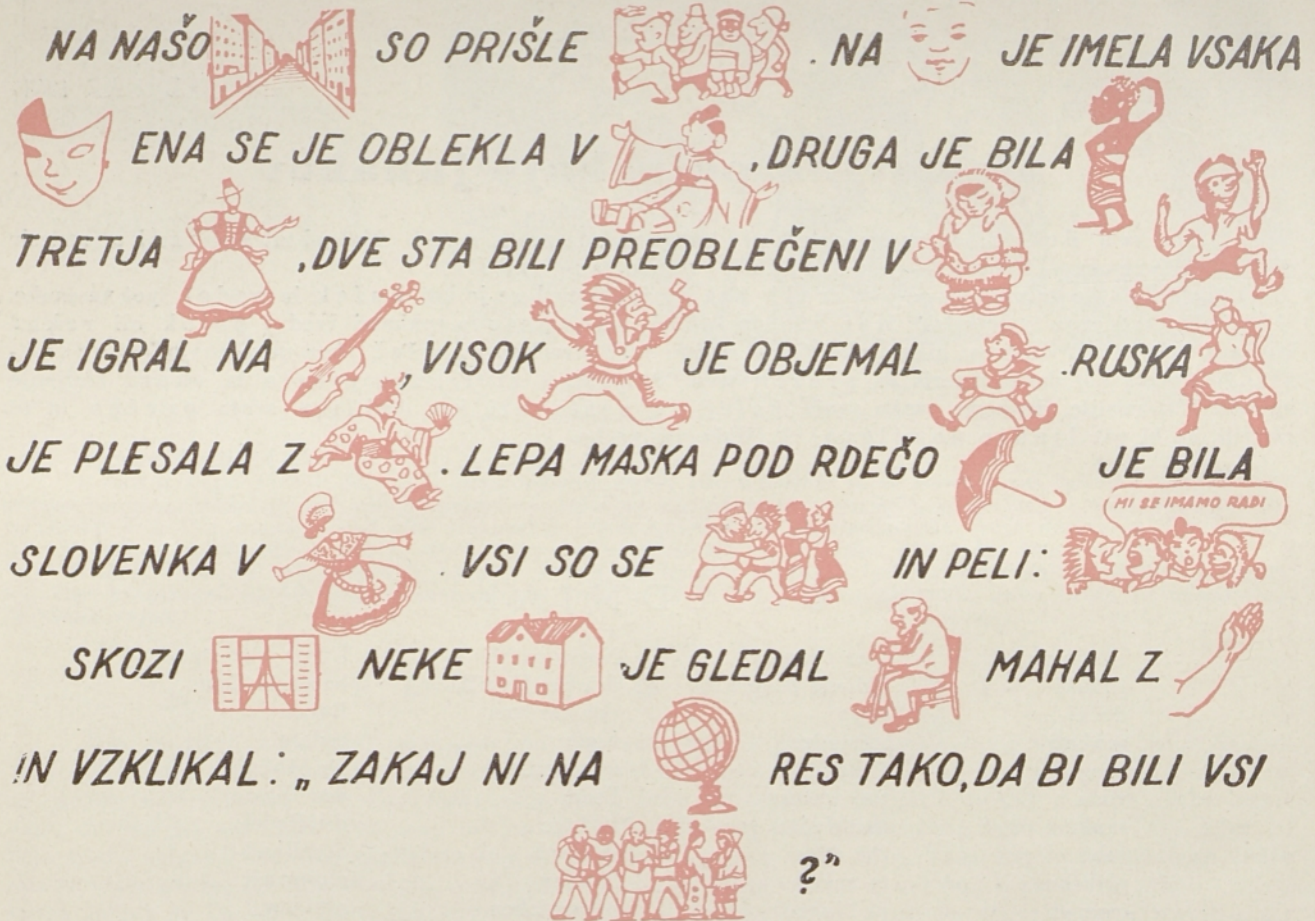 NA NAŠO SO PRIŠLE . NA JE IMELA VSAKA
ENA SE JE OBLEKLA V , DRUGA JE BILA
TRETJA , DVE STA BILI PREOBLEČENI V
JE IGRAL NA , VISOK JE OBJEMAL . RUSKA
JE PLESALA Z . LEPA MASKA POD RDEČO JE BILA
MI SE IMAMO RADI
SLOVENKA V . VSI SO SE IN PELI:
SKOZI NEKE JE GLEDAL MAHAL Z
IN VZKLIKAL: „ ZAKAJ NI NA RES TAKO, DA BI BILI VSI
?”